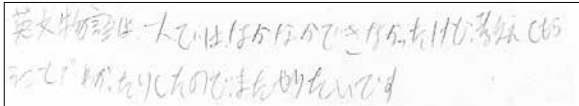 英文物語は一人ではなかなかできなかったけど、教えてもら
ってよかったりしたのでまたやりたいです